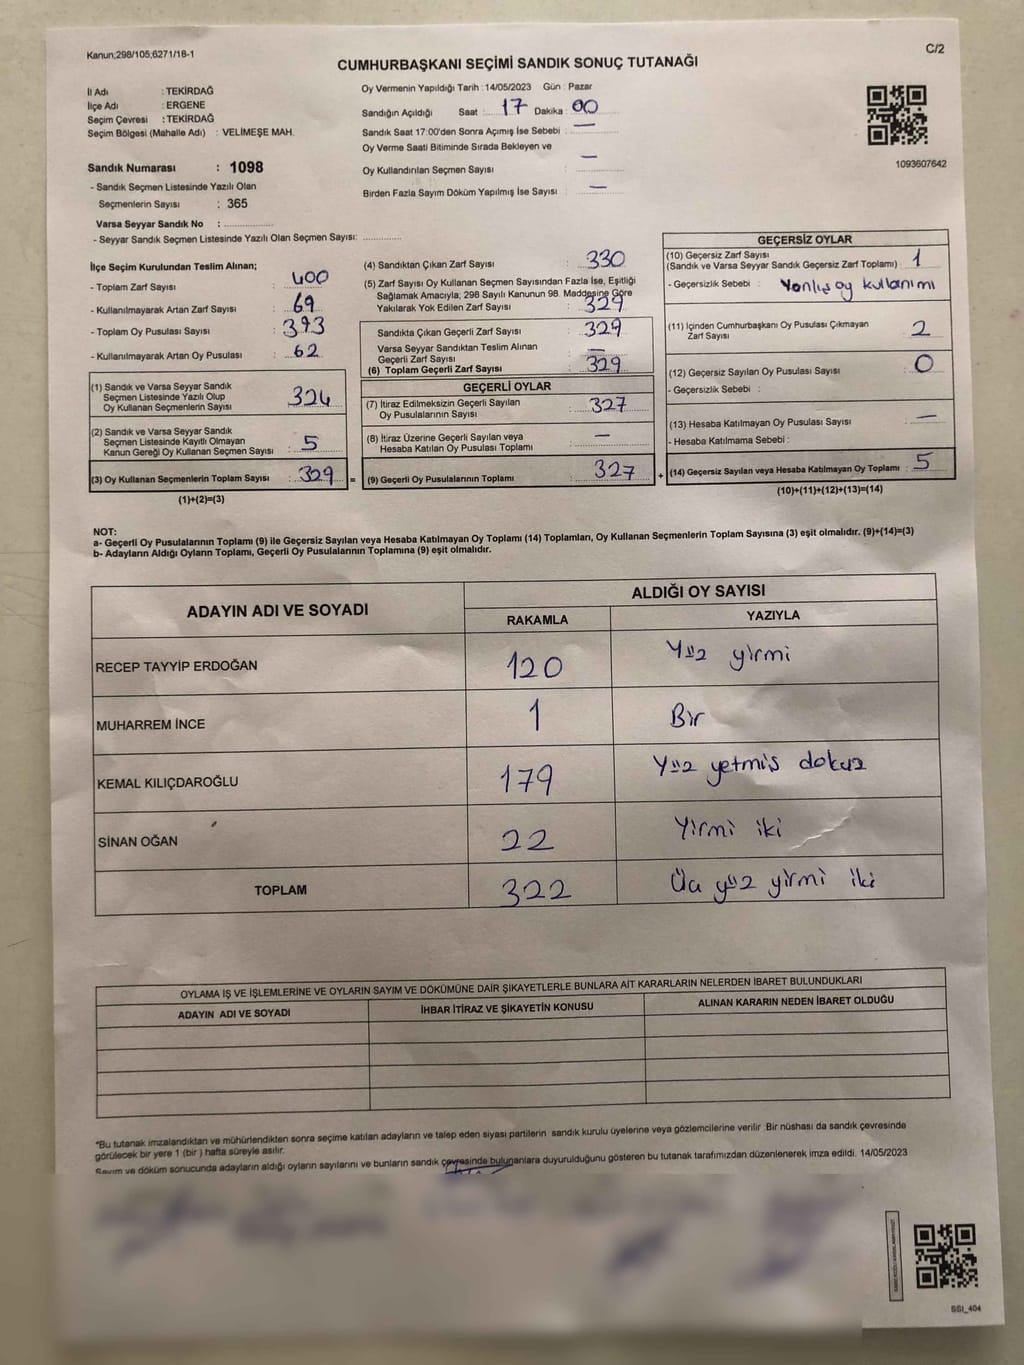 Kanun;298/105;6271/18-1
C/2
CUMHURBAŞKANI SEÇİMİ SANDIK SONUÇ TUTANAĞI
İl Adı : TEKİRDAĞ
İlçe Adı : ERGENE
Seçim Çevresi : TEKİRDAĞ
Seçim Bölgesi (Mahalle Adı) : VELİMEŞE MAH.
Sandık Numarası : 1098
- Sandık Seçmen Listesinde Yazılı Olan
Seçmenlerin Sayısı : 365
Varsa Seyyar Sandık No : ..............
- Seyyar Sandık Seçmen Listesinde Yazılı Olan Seçmen Sayısı: ............
Oy Vermenin Yapıldığı Tarih : 14/05/2023 Gün : Pazar
Sandığın Açıldığı Saat : 17 Dakika : 00
Sandık Saat 17:00'den Sonra Açımış İse Sebebi : —
Oy Verme Saati Bitiminde Sırada Bekleyen ve
Oy Kullandırılan Seçmen Sayısı : —
Birden Fazla Sayım Döküm Yapılmış İse Sayısı : —
1093607642
İlçe Seçim Kurulundan Teslim Alınan;
- Toplam Zarf Sayısı : 400
- Kullanılmayarak Artan Zarf Sayısı : 69
- Toplam Oy Pusulası Sayısı : 393
- Kullanılmayarak Artan Oy Pusulası : 62
(1) Sandık ve Varsa Seyyar Sandık
Seçmen Listesinde Yazılı Olup
Oy Kullanan Seçmenlerin Sayısı : 324
(2) Sandık ve Varsa Seyyar Sandık
Seçmen Listesinde Kayıtlı Olmayan
Kanun Gereği Oy Kullanan Seçmen Sayısı : 5
(3) Oy Kullanan Seçmenlerin Toplam Sayısı : 329 =
(1)+(2)=(3)
(4) Sandıktan Çıkan Zarf Sayısı : 330
(5) Zarf Sayısı Oy Kullanan Seçmen Sayısından Fazla İse, Eşitliği
Sağlamak Amacıyla; 298 Sayılı Kanunun 98. Maddesine Göre
Yakılarak Yok Edilen Zarf Sayısı : 329
Sandıkta Çıkan Geçerli Zarf Sayısı : 329
Varsa Seyyar Sandıktan Teslim Alınan
Geçerli Zarf Sayısı : —
(6) Toplam Geçerli Zarf Sayısı : 329
GEÇERLİ OYLAR
(7) İtiraz Edilmeksizin Geçerli Sayılan
Oy Pusulalarının Sayısı : 327
(8) İtiraz Üzerine Geçerli Sayılan veya
Hesaba Katılan Oy Pusulası Toplamı : —
(9) Geçerli Oy Pusulalarının Toplamı : 327 +
GEÇERSİZ OYLAR
(10) Geçersiz Zarf Sayısı
(Sandık ve Varsa Seyyar Sandık Geçersiz Zarf Toplamı) : 1
- Geçersizlik Sebebi : Yanlış oy kullanımı
(11) İçinden Cumhurbaşkanı Oy Pusulası Çıkmayan
Zarf Sayısı : 2
(12) Geçersiz Sayılan Oy Pusulası Sayısı : 0
- Geçersizlik Sebebi :
(13) Hesaba Katılmayan Oy Pusulası Sayısı : —
- Hesaba Katılmama Sebebi :
(14) Geçersiz Sayılan veya Hesaba Katılmayan Oy Toplamı : 5
(10)+(11)+(12)+(13)=(14)
NOT:
a- Geçerli Oy Pusulalarının Toplamı (9) ile Geçersiz Sayılan veya Hesaba Katılmayan Oy Toplamı (14) Toplamları, Oy Kullanan Seçmenlerin Toplam Sayısına (3) eşit olmalıdır. (9)+(14)=(3)
b- Adayların Aldığı Oyların Toplamı, Geçerli Oy Pusulalarının Toplamına (9) eşit olmalıdır.
ADAYIN ADI VE SOYADI
ALDIĞI OY SAYISI
RAKAMLA YAZIYLA
RECEP TAYYİP ERDOĞAN 120 Yüz yirmi
MUHARREM İNCE 1 Bir
KEMAL KILIÇDAROĞLU 179 Yüz yetmis dokuz
SİNAN OĞAN 22 Yirmi iki
TOPLAM 322 Üç yüz yirmi iki
OYLAMA İŞ VE İŞLEMLERİNE VE OYLARIN SAYIM VE DÖKÜMÜNE DAİR ŞİKAYETLERLE BUNLARA AİT KARARLARIN NELERDEN İBARET BULUNDUKLARI
ADAYIN ADI VE SOYADI İHBAR İTİRAZ VE ŞİKAYETİN KONUSU ALINAN KARARIN NEDEN İBARET OLDUĞU
*Bu tutanak imzalandıktan ve mühürlendikten sonra seçime katılan adayların ve talep eden siyasi partilerin sandık kurulu üyelerine veya gözlemcilerine verilir .Bir nüshası da sandık çevresinde
görülecek bir yere 1 (bir ) hafta süreyle asılır.
Sayım ve döküm sonucunda adayların aldığı oyların sayılarını ve bunların sandık çevresinde bulunanlara duyurulduğunu gösteren bu tutanak tarafımızdan düzenlenerek imza edildi. 14/05/2023
SSI_404